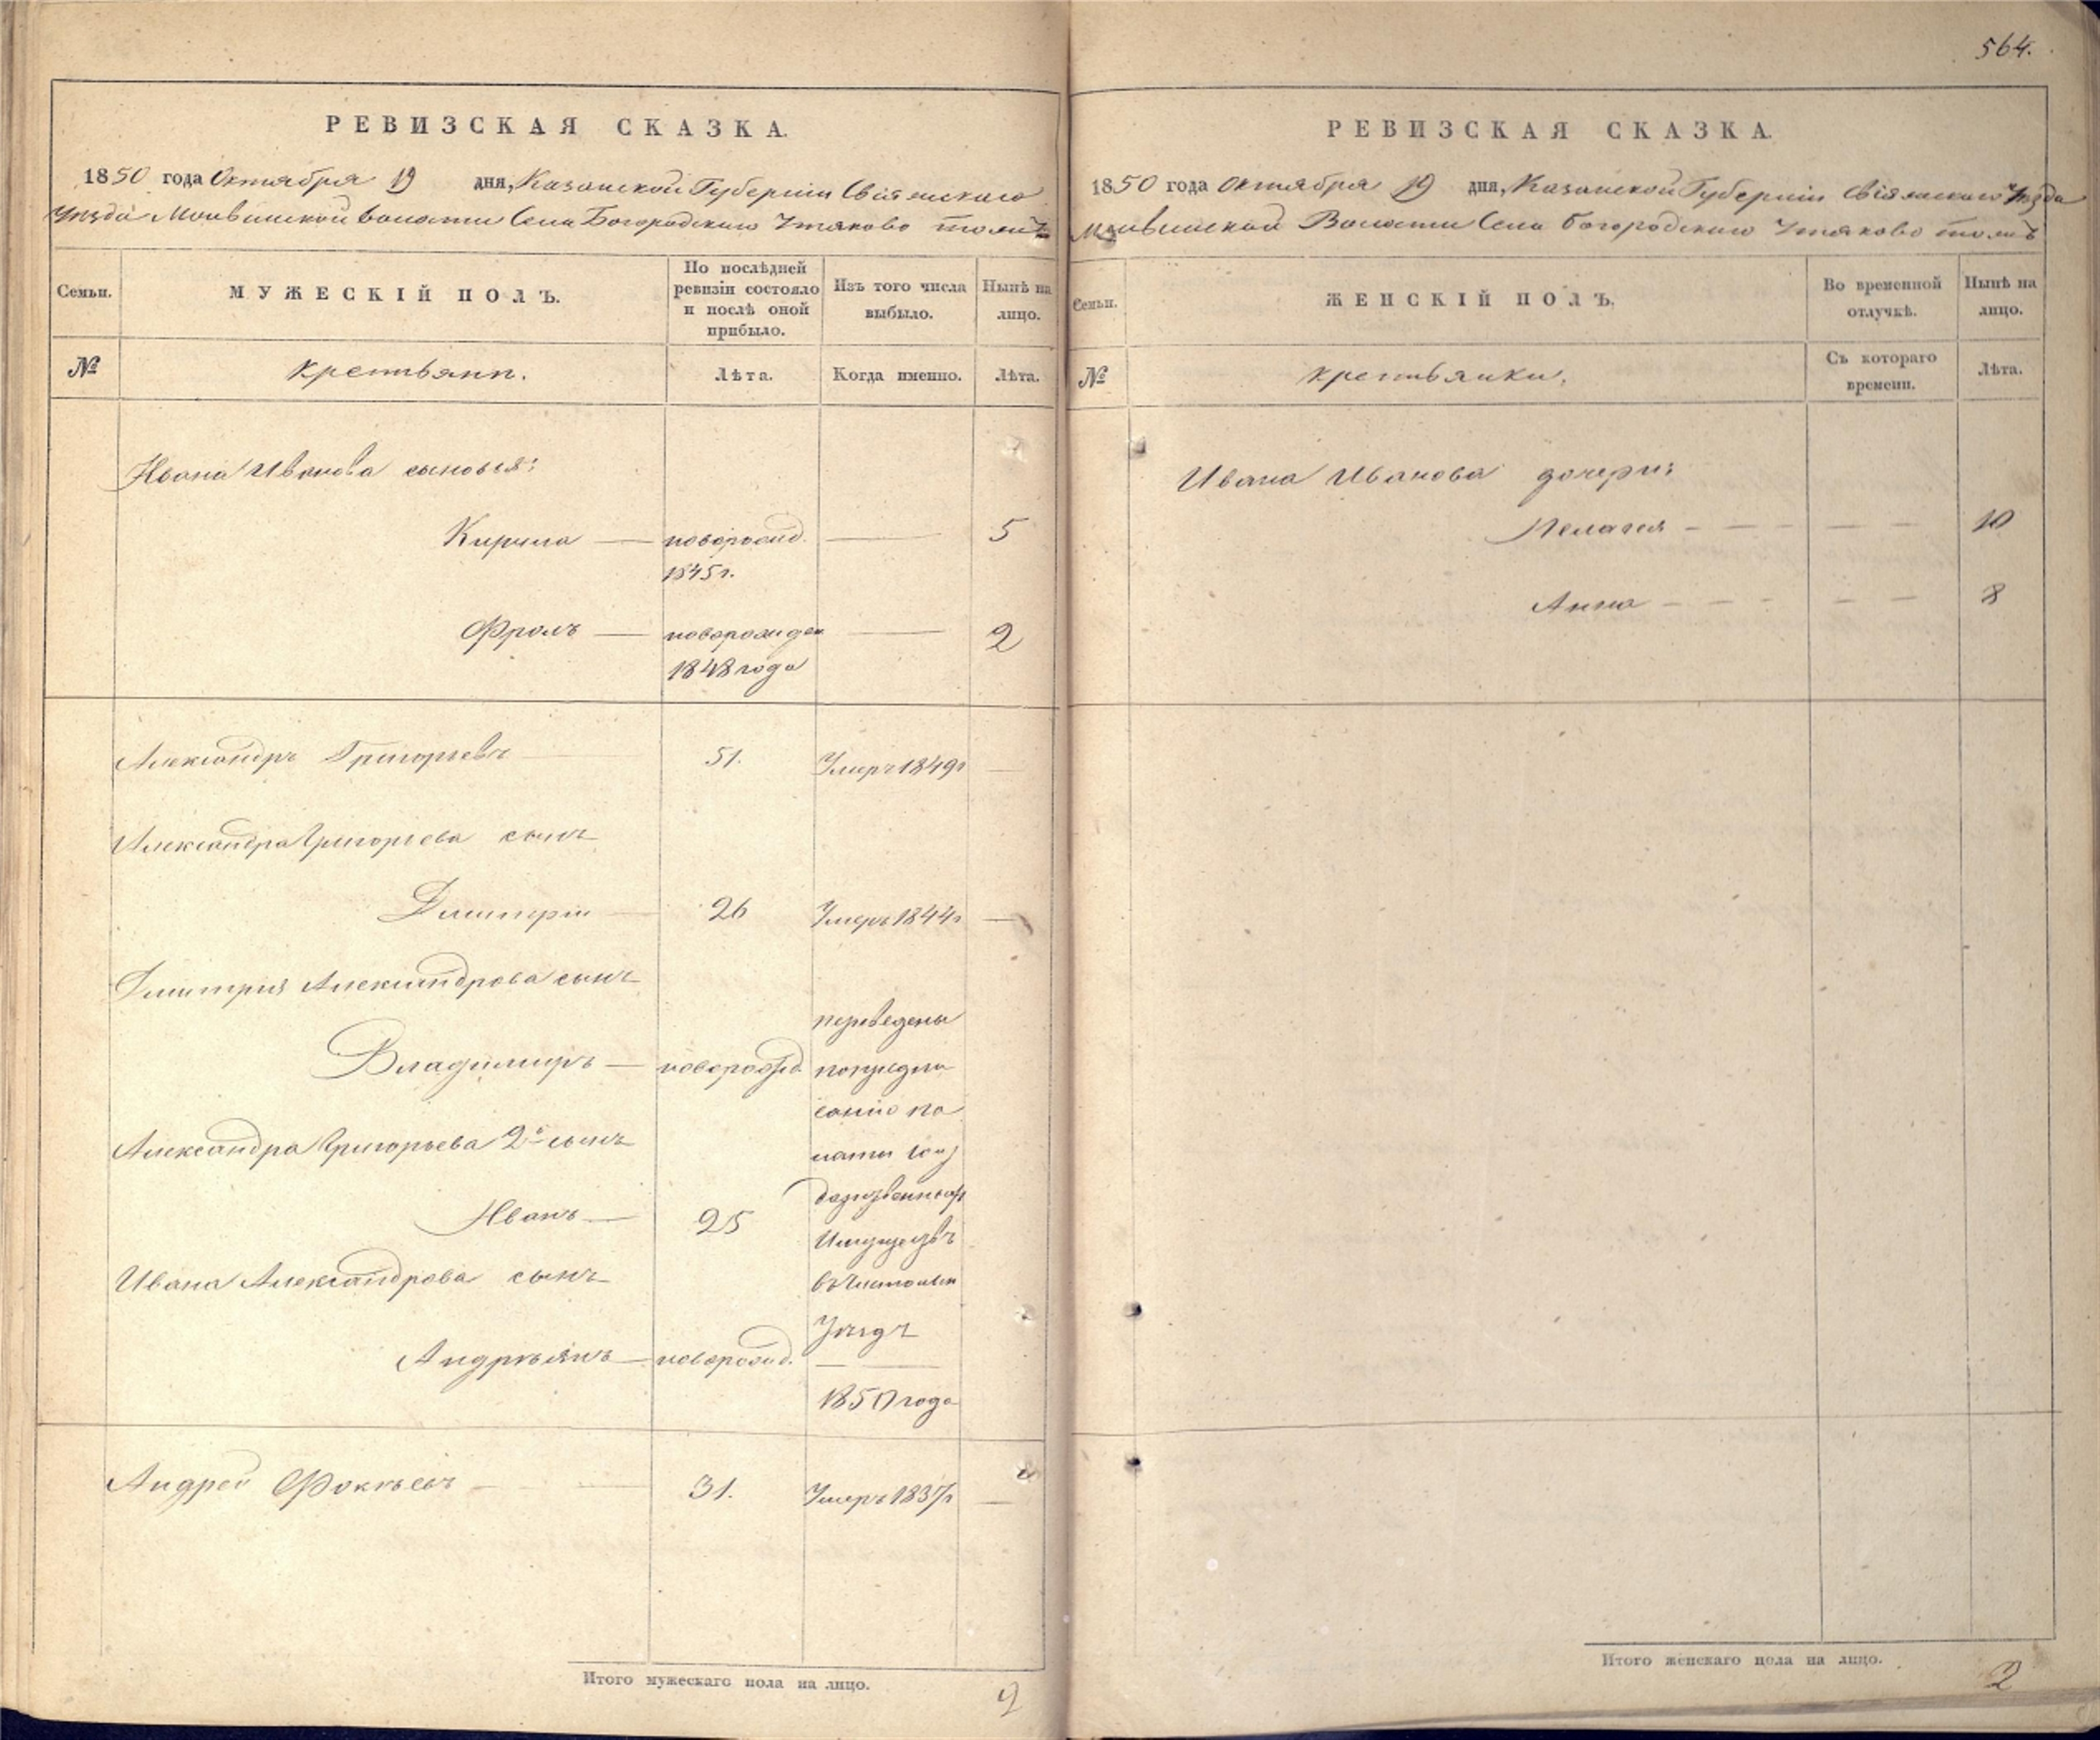 564.
РЕВИЗСКАЯ СКАЗКА.
1850 года Октября 19 дня, Казанской Губерніи Свіяжскаго
Уѣзда Волости Села Богородскаго Утяково тожъ
Семьи.
МУЖЕСКІЙ ПОЛЪ.
По послѣдней
ревизіи состояло
и послѣ оной
прибыло.
Изъ того числа
выбыло.
Нынѣ на
лицо.
№
крестьяни.
Лѣта.
Когда именно.
Лѣта.
Ивана Иванова сыновья:
Кирила — новорожд. — 5
1845г.
Фролъ — новорожден — 2
1848 года
Александръ Григорьевъ — 51. Умеръ 1849г —
Александра Григорьева сынъ
Дмитрій — 26 Умеръ 1844г —
Дмитрія Александрова сынъ
переведены
Владимиръ — новорожд. попредпи
санію па
Александра Григорьева 2й сынъ
латы Госу
дарственныхъ
Иванъ — 25
Имуществъ
Ивана Александрова сынъ
въ
Уѣздъ
Андреянъ — новорожд. —
1850 года
Андрей Фокѣевъ — 31. Умеръ 1837г —
Итого мужескаго пола на лицо.
2
РЕВИЗСКАЯ СКАЗКА.
1850 года Октября 19 дня, Казанской Губерніи Свіяжскаго Уѣзда
Волости Села Богородскаго Утяково тожъ
Семьи.
ЖЕНСКІЙ ПОЛЪ.
Во временной
отлучкѣ.
Нынѣ на
лицо.
№
крестьянки.
Съ котораго
времени.
Лѣта.
Ивана Иванова дочери:
Пелагея — — — — — 10
Анна — — — — — 8
Итого женскаго пола на лицо.
2